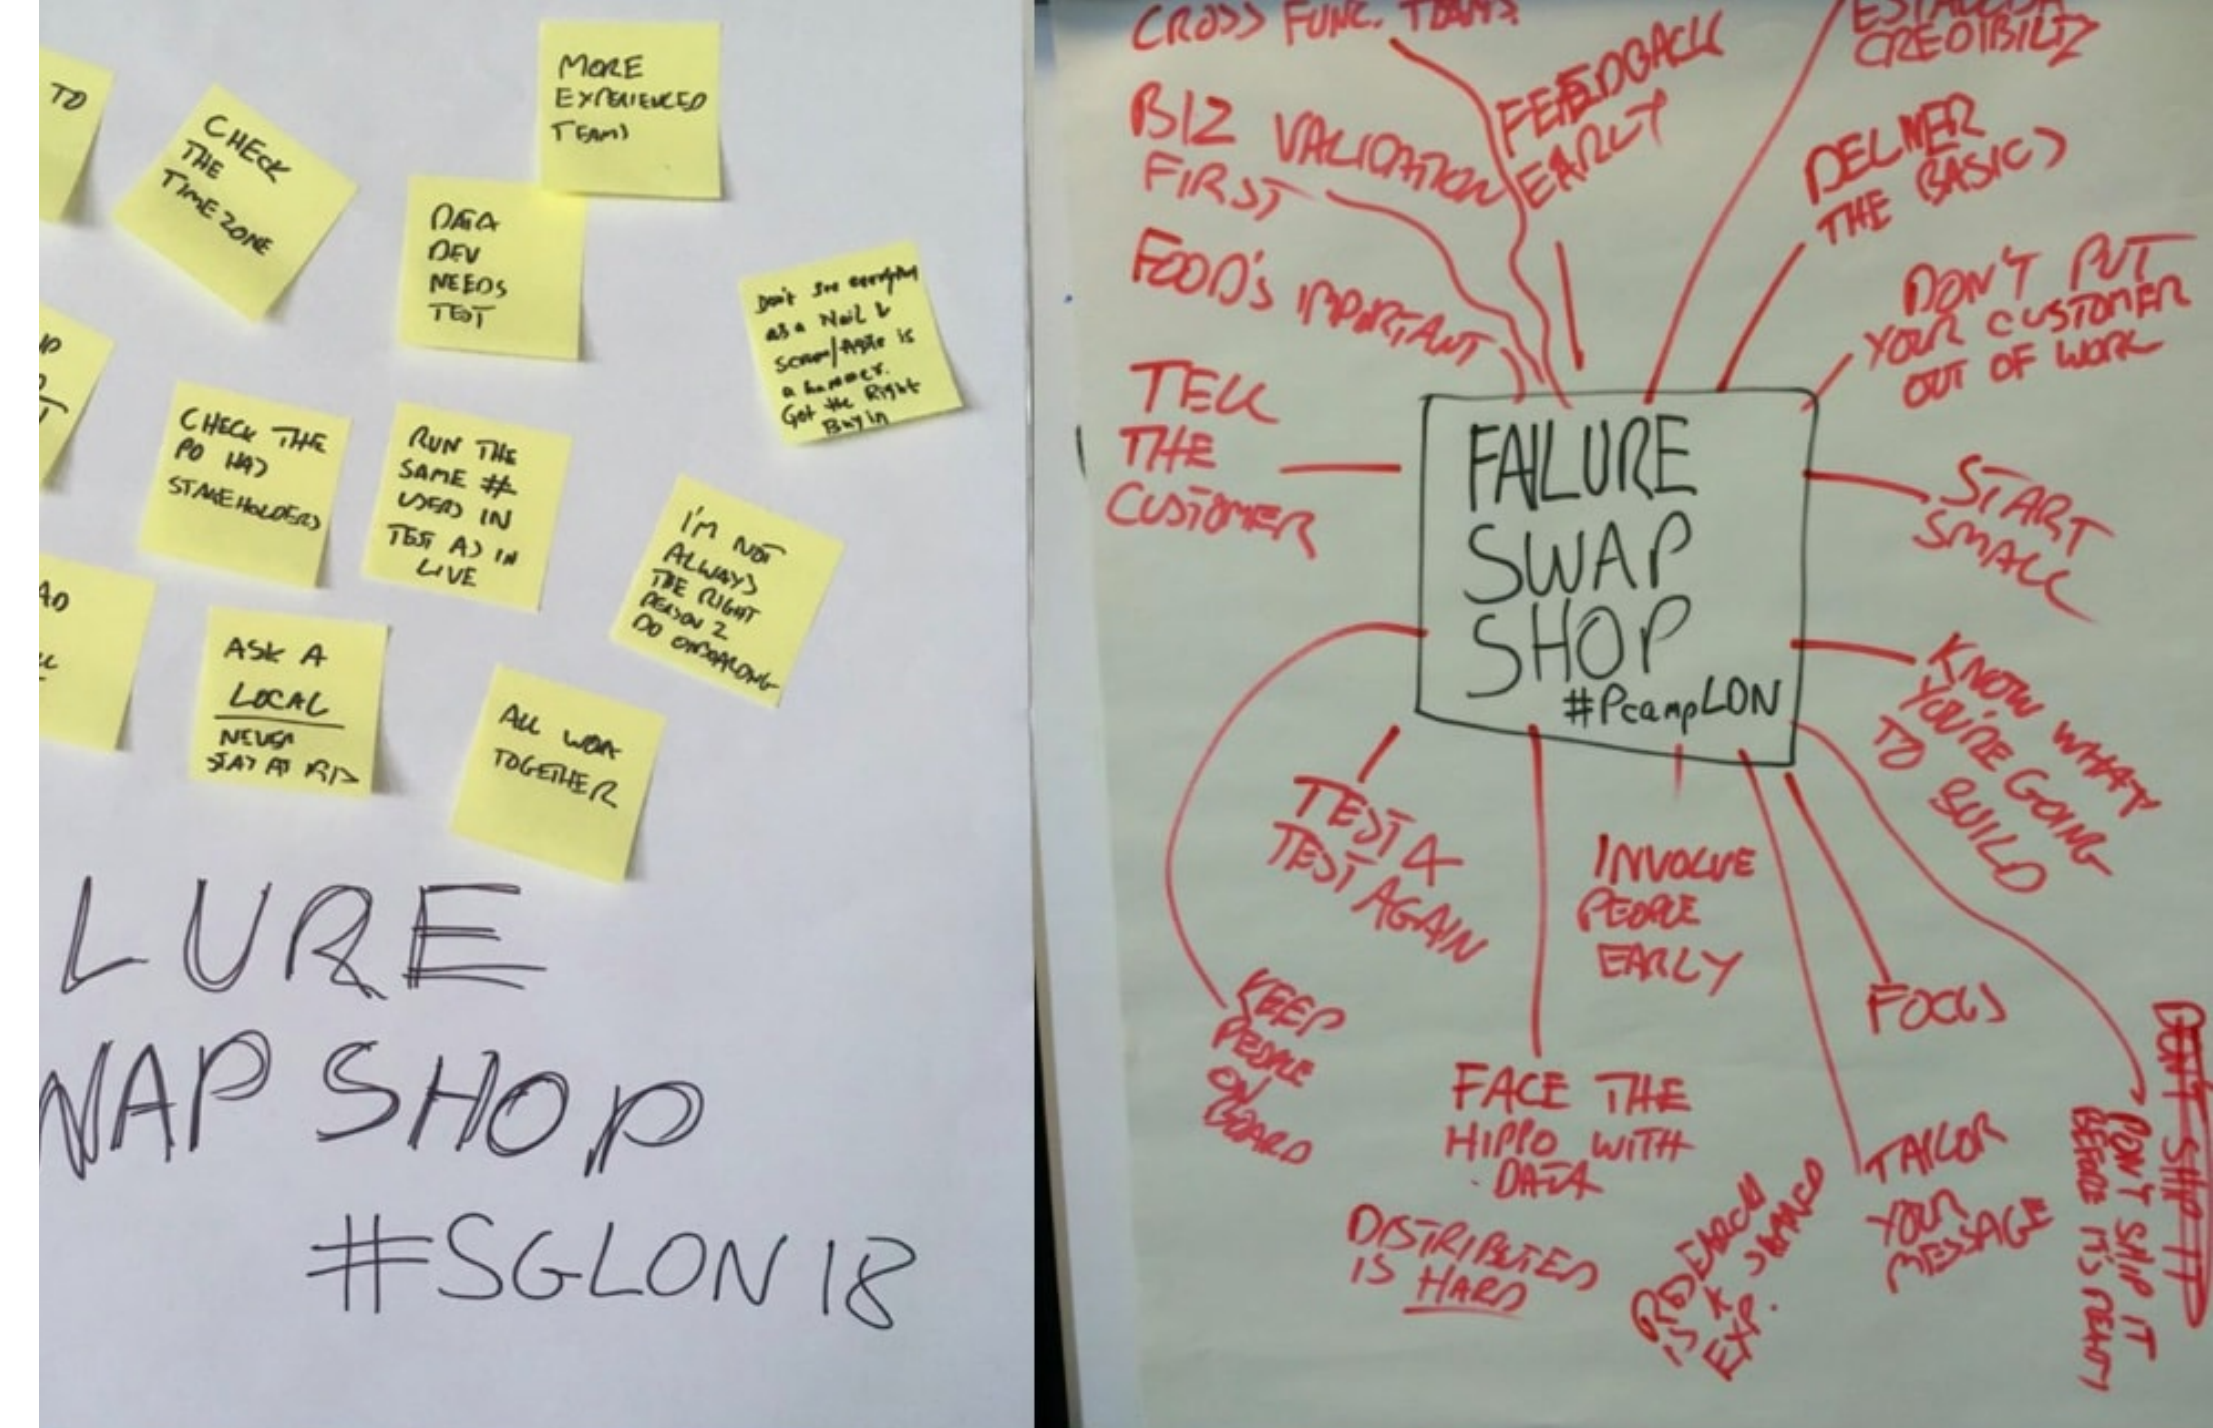 TO
CHECK
THE
TIMEZONE
MORE
EXPERIENCED
TEAMS
DATA
DEV
NEEDS
TEST
Don't see everything
as a Nail &
scrum/Agile is
a hammer.
Get the Right
Buy in
CHECK THE
PO HAS
STAKEHOLDERS
RUN THE
SAME #
USERS IN
TEST AS IN
LIVE
I'M NOT
ALWAYS
THE RIGHT
PERSON 2
DO ONBOARDING
ASK A
LOCAL
NEVER
STAY AT
ALL WORK
TOGETHER
LURE
WAP SHOP
#SGLON18
CROSS FUNC. TEAMS
BIZ VALIDATION
FIRST
FOOD'S IMPORTANT
TELL
THE
CUSTOMER
FEEDBACK
EARLY
ESTABLISH
CREDIBILITY
DELIVER
THE BASICS
DON'T PUT
YOUR CUSTOMER
OUT OF WORK
START
SMALL
FAILURE
SWAP
SHOP
#PcampLON
KNOW WHAT
YOU'RE GOING
TO BUILD
TEST &
TEST AGAIN
INVOLVE
PEOPLE
EARLY
FOCUS
KEEP
PEOPLE
ON
BOARD
FACE THE
HIPPO WITH
DATA
DISTRIBUTED
IS HARD
RESEARCH
IS A SHARED
EXP.
TAILOR
YOUR
MESSAGE
DON'T SHIP IT
DON'T SHIP IT
BEFORE IT'S READY